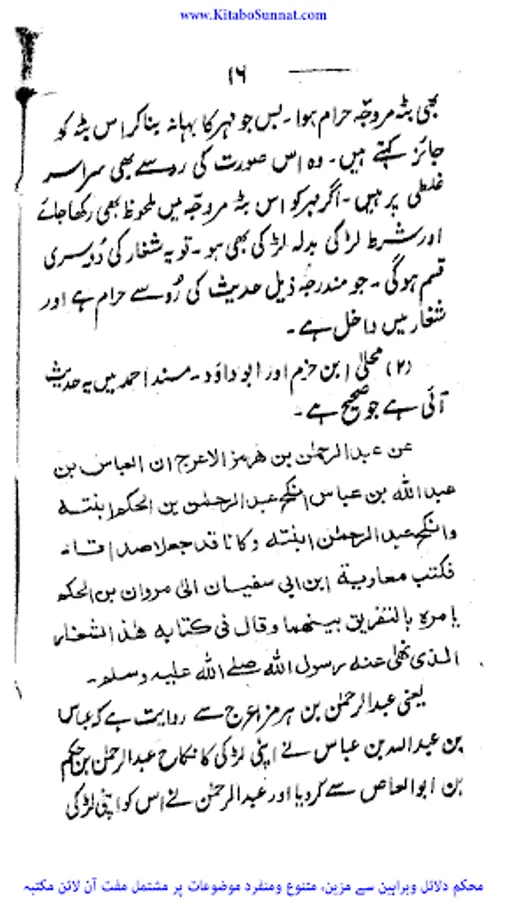 www.KitaboSunnat.com
۱۶
بھی بٹہ مروجہ حرام ہوا۔ بس جو مہر کا بہانہ بنا کر اس بٹہ کو
جائز کہتے ہیں۔ وہ اس صورت کی رو سے بھی سراسر
غلطی پر ہیں۔ اگر مہر کو اس بٹہ مروجہ میں ملحوظ بھی رکھا جائے
اور شرط لڑکی بدلہ لڑکی بھی ہو۔ تو یہ شغار کی دوسری
قسم ہوگی۔ جو مندرجہ ذیل حدیث کی رُو سے حرام ہے اور
شغار میں داخل ہے۔
(۲) محلیٰ ابن حزم اور ابو داؤد۔ مسند احمد میں یہ حدیث
آئی ہے جو صحیح ہے۔
عن عبدالرحمٰن بن هرمز الاعرج ان العباس بن
عبد الله بن عباس انكح عبدالرحمٰن بن الحكم ابنته
وانكح عبدالرحمٰن ابنته وكانا قد جعلا صداقا۔
فكتب معاوية ابن ابي سفيان الى مروان بن الحكم
يامره بالتفريق بينهما وقال في كتابه هذا الشغار
الذي نهى عنه رسول الله صلے الله عليه وسلم۔
یعنی عبدالرحمٰن بن ہرمز اعرج سے روایت ہے کہ عباس
بن عبداللہ بن عباس نے اپنی لڑکی کا نکاح عبدالرحمٰن بن حکم
بن ابوالعاص سے کر دیا اور عبدالرحمٰن نے اس کو اپنی لڑکی
محکم دلائل وبراہین سے مزین، متنوع ومنفرد موضوعات پر مشتمل مفت آن لائن مکتبہ